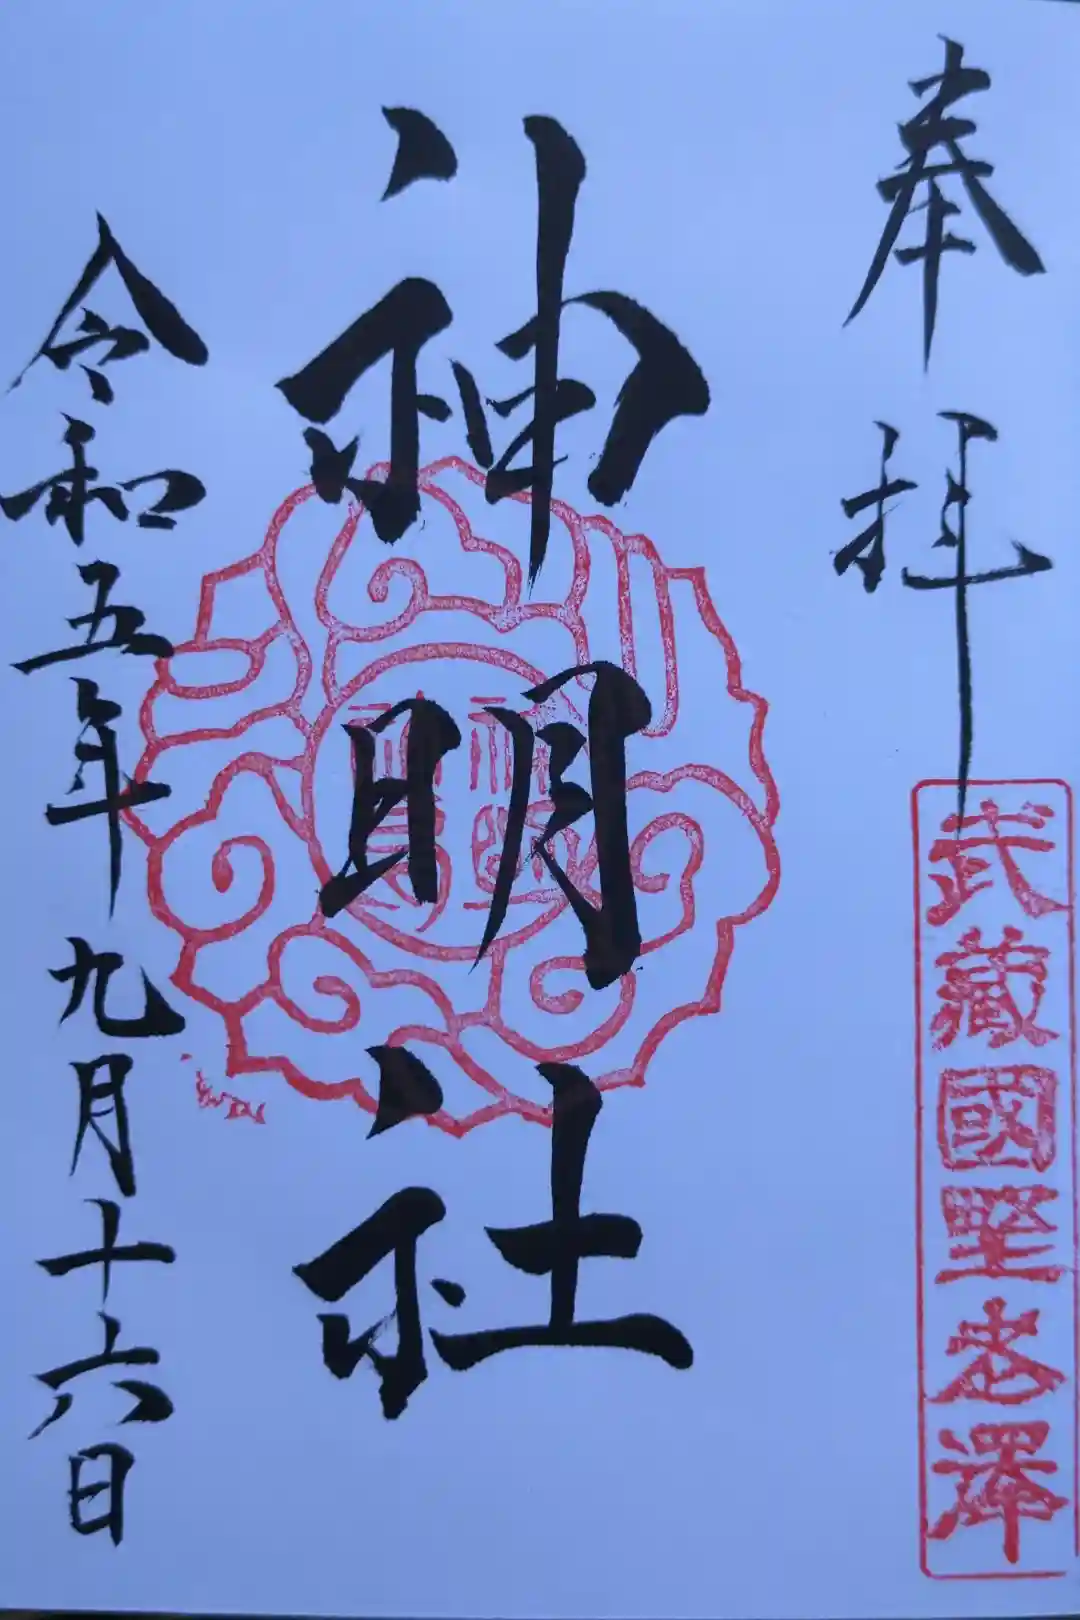 奉拝
武蔵國野老澤
神明社
令和五年九月十六日